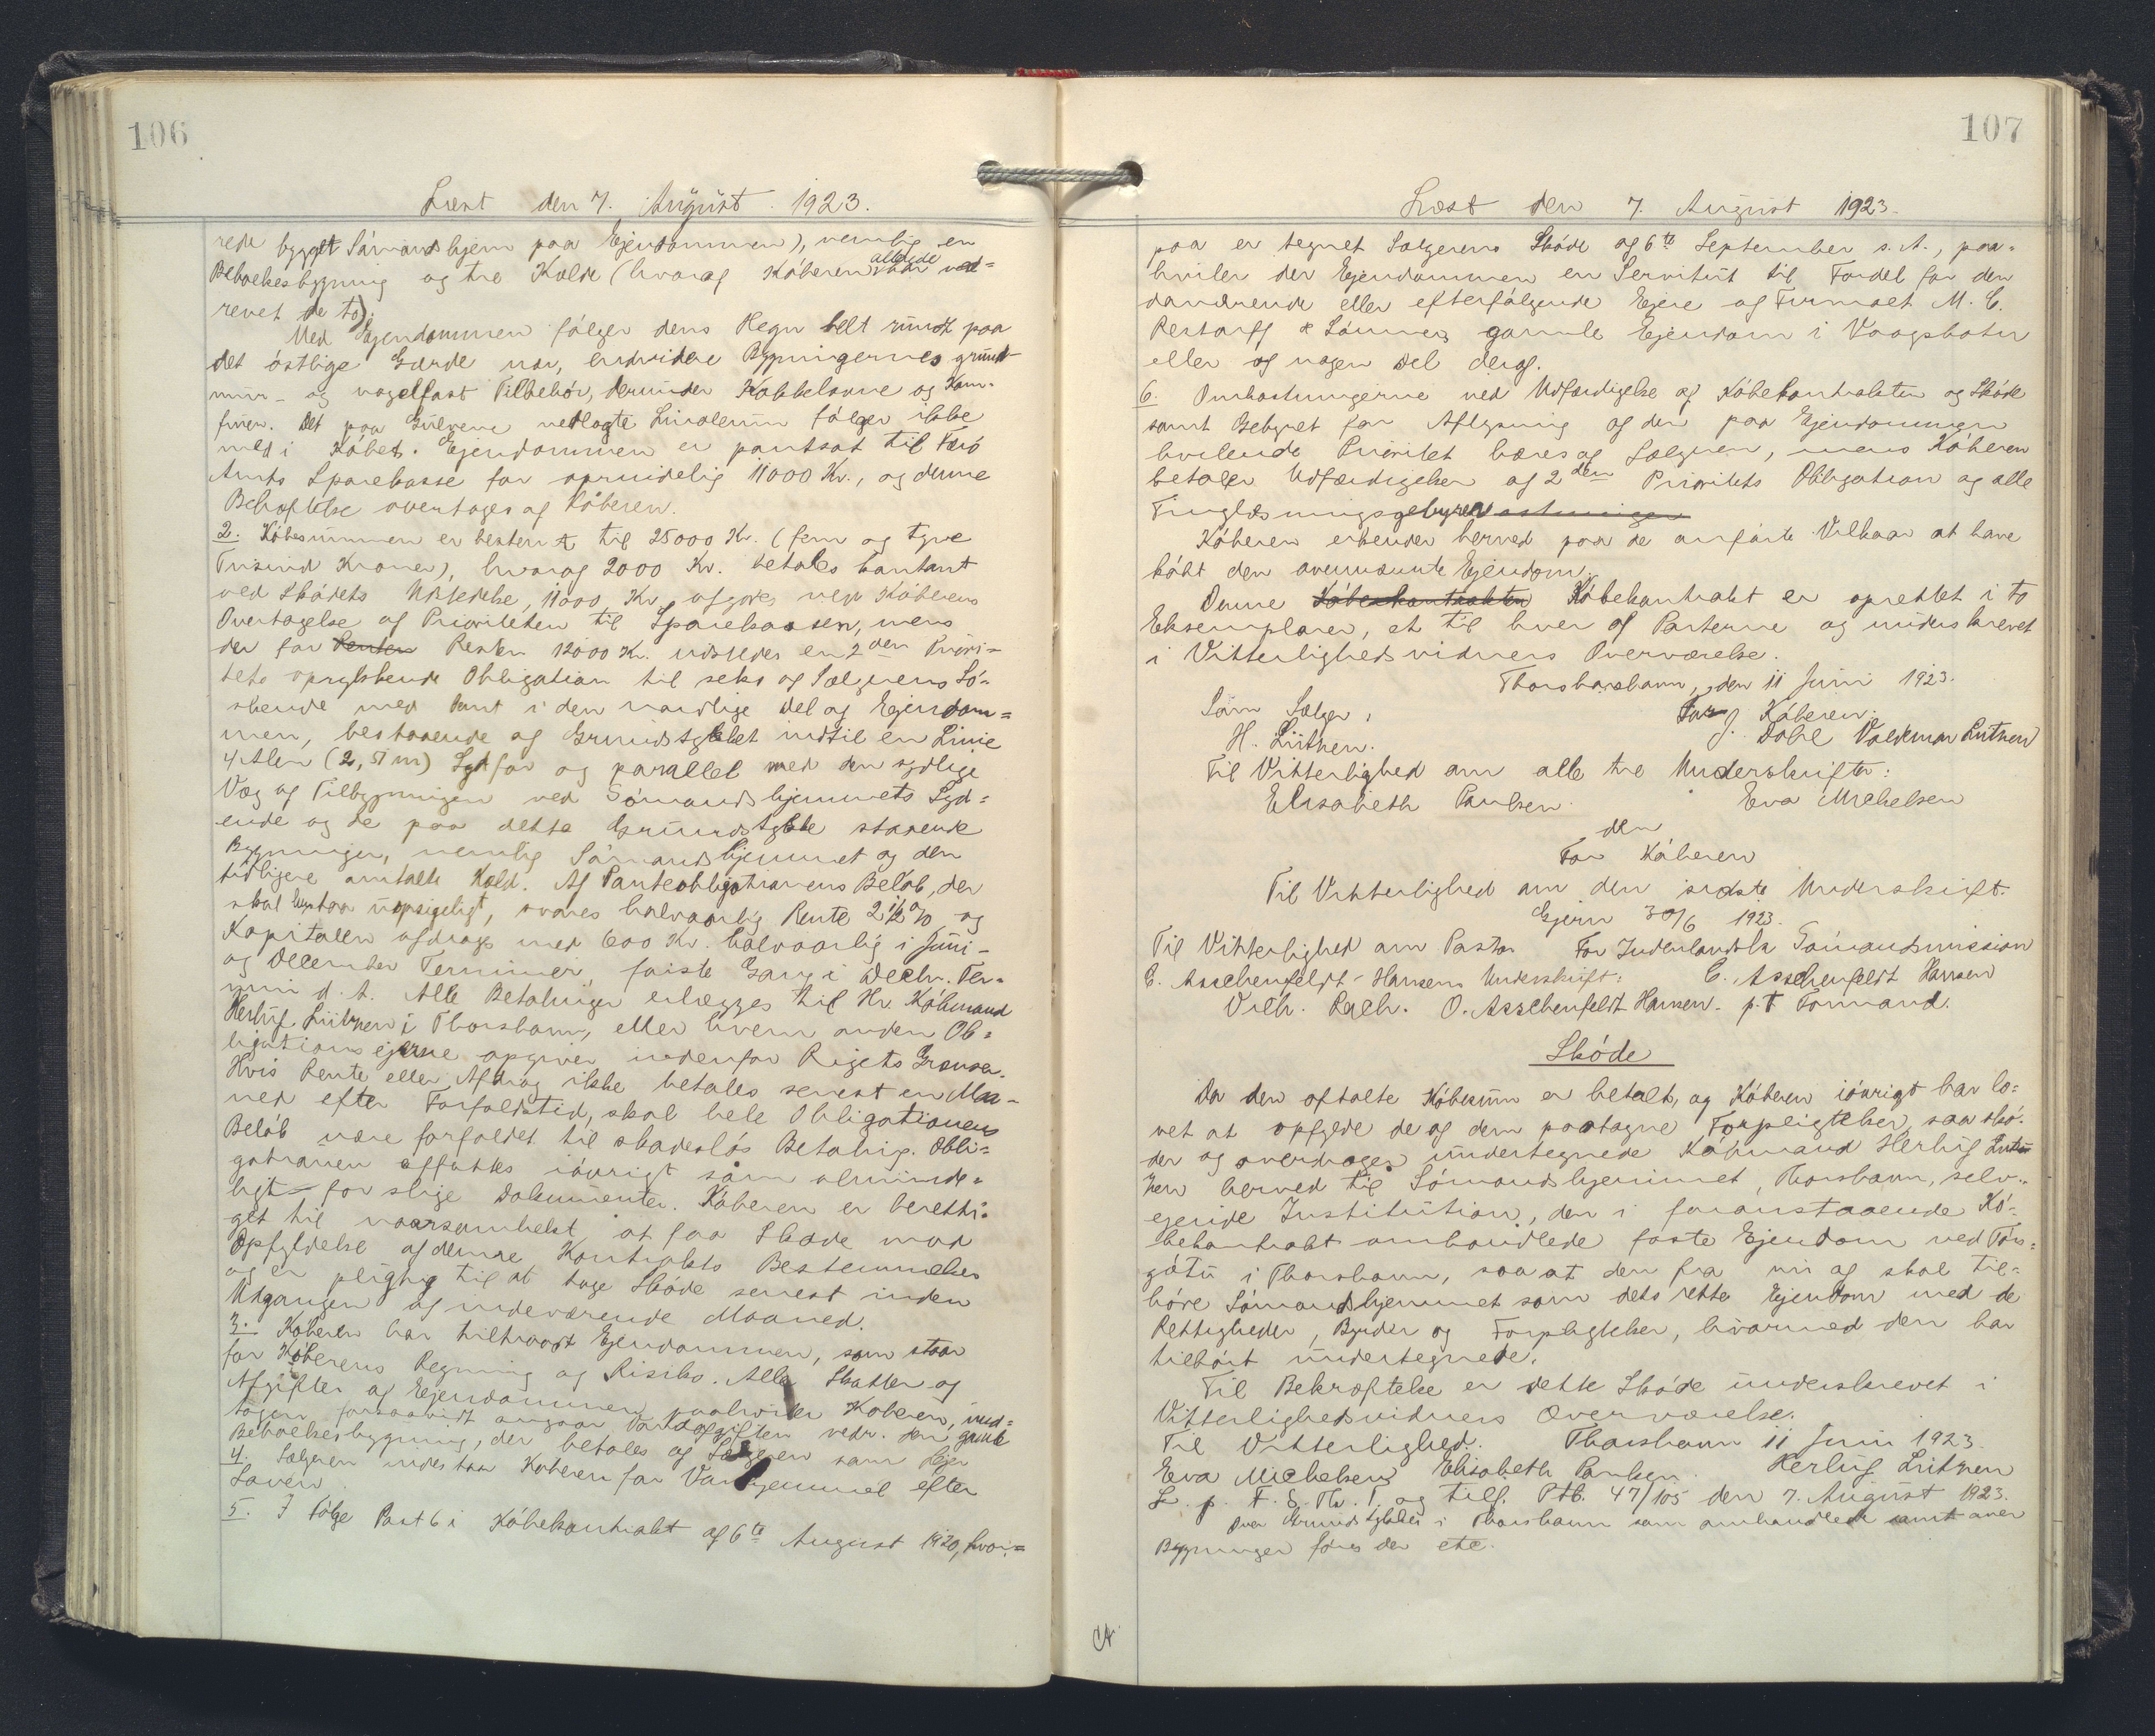 106
Læst den 7. August 1923.
rede bygget Sómandshjem paa Ejendommen), nemlig en
Beboelsesbygning og tre Kjælde (hvoraf Kóberen allerede har ned=
revet de to).
Med Ejendommen fólger dens Hegn helt rundt paa
det óstlige Gærde nær, endvidere Bygningernes grund-
mur- og nagelfast Tilbehór, derunder Kakkelovne og Kom-
furer. Det paa Gulvene nedlagte Linoleum fólger ikke
med i Kóbet. Ejendommen er pantsat til Færó
Amts Sparekasse for oprindelig 11000 Kr., og denne
Behæftelse overtages af Kóberen.
2. Kóbesummen er bestemt til 25000 Kr. (fem og tyve
Tusind Kroner), hvoraf 2000 Kr. betales kontant
ved Skódets Udstedelse, 11000 Kr. afgóres ved Kóberens
Overtagelse af Prioriteten til Sparekassen, mens
der for Renten Resten 12000 Kr. udstedes en 2den Priori-
tets oprykkende Obligation til seks af Sælgerens Só-
skende med Pant i den nordlige Del af Ejendom=
men, bestaaende af Grundstykket indtil en Linie
4 Alen (2,51 m) Syd for og parallel med den sydlige
Væg af Tilbygningen ved Sómandshjemmets Syd=
ende og de paa dette Grundstykke staaende
Bygninger, nemlig Sómandshjemmet og den
tidligere omtalte Kjæld. Af Panteobligationens Belób, der
skal henstaa uopsigeligt, svares halvaarlig Rente 2½ % og
Kapitalen afdrages med 600 Kr. halvaarlig i Juni-
og December Terminer, fórste Gang i Decbr. Ter-
min d. A. Alle Betalinger erlægges til Hr. Kóbmand
Herluf Lützen i Thorshavn, eller hvem anden Ob=
ligationsejerne opgiver indenfor Rigets Grænser.
Hvis Rente eller Afdrag ikke betales senest en Maa-
ned efter Forfaldstid, skal hele Obligationens
Belób være forfaldet til skadeslós Betaling. Obli=
gationen affattes ióvrigt som alminde=
ligt for slige Dokumenter. Kóberen er beretti-
get til naarsomhelst at faa Skóde mod
Opfyldelse af denne Kontrakts Bestemmelser
og er pligtig til at tage Skóde senest inden
Udgangen af indeværende Maaned.
3. Kóberen har tiltraadt Ejendommen, som staar
for Kóberens Regning og Risiko. Alle Skatter og
Afgifter af Ejendommen paahviler Kóberen, und=
tagen forsaavidt angaar Vandafgiften vedr. den gamle
Beboelsesbygning, der betales af Sælgeren som Lejer
4. Sælgeren indestaar Kóberen for Vanhjemmel efter
Loven.
5. I Fólge Post 6 i Kóbekontrakt af 6te August 1920, hvor-=
107
Læst den 7. August 1923.
paa er tegnet Sælgerens Skóde af 6te September s. A., paa-
hviler der Ejendommen en Servitut til Fordel for den
daværende eller efterfólgende Ejere af Firmaet M. C.
Restorff & Sónners gamle Ejendom i Vaagsbotn
eller af nogen Del deraf.
6. Omkostningerne ved Udfærdigelse af Kóbekontrakten og Skóde
samt Gebyret for Aflysning af den paa Ejendommen
hvilende Prioritet bæres af Sælgeren, mens Kóberen
betaler Udfærdigelsen af 2den Prioritets Obligation og alle
Tinglæsningsgebyrer
Kóberen erkender herved paa de anfórte Vilkaar at have
kóbt den ovennævnte Ejendom.
Denne Kóbekontrakten Kóbekontrakt er oprettet i to
Eksemplarer, et til hver af Parterne og underskrevet
i Vitterlighedsvidners Overværelse.
Thorshavn, den 11 Juni 1923.
Som Sælger, For Kóberen:
H. Lützen. J. Dahl Valdemar Lützen
Til Vitterlighed om alle tre Underskrifter:
Elisabeth Paulsen. Eva Michelsen
den
For Kóberen
Til Vitterlighed om den sidste Underskrift:
Gjern 30/6 1923.
Til Vitterlighed om Pastor For Indenlandsk Sómandsmission
C. Asschenfeldt-Hansens Underskrift: C. Asschenfeldt Hansen
Vilh. O. Asschenfeldt Hansen. p.t Formand.
Skóde
Da den aftalte Kóbesum er betalt, og Kóberen ióvrigt har lo=
vet at opfylde de af dem paatagne Forpligtelser, saa skó-
der og overdrager undertegnede Kóbmand Herluf Lüt-
zen herved til Sómandshjemmet, Thorshavn, selv-
ejende Institution, den i foranstaaende Kó-
bekontrakt omhandlede faste Ejendom ved Tórs=
gótu i Thorshavn, saa at den fra nu af skal til-
hóre Sómandshjemmet som dets rette Ejendom med de
Rettigheder, Byrder og Forpligtelser, hvormed den har
tilhórt undertegnede.
Til Bekræftelse er dette Skóde underskrevet i
Vitterlighedsvidners Overværelse.
Til Vitterlighed: Thorshavn 11 Juni 1923.
Eva Michelsen Elisabeth Paulsen. Herluf Lützen
L. p. F. S. Th. T. og tilf. Ptb. 47/105 den 7. August 1923.
Over Grundstykket i Thorshavn som omhandlede samt over
Bygninger fóres der etc.